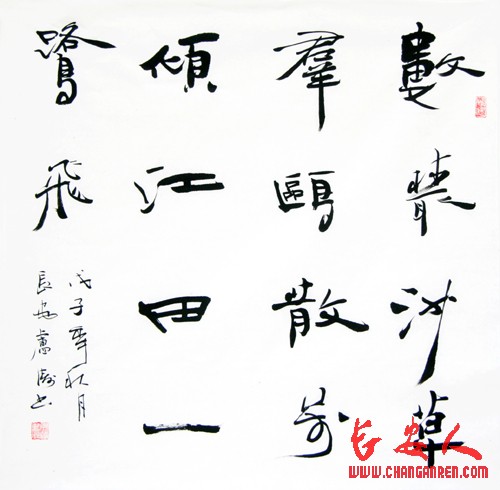 數叢沙草
羣鷗散萬
傾江田一
鷺飛
戊子年秋月
長安書
长安人
WWW.CHANGANREN.COM